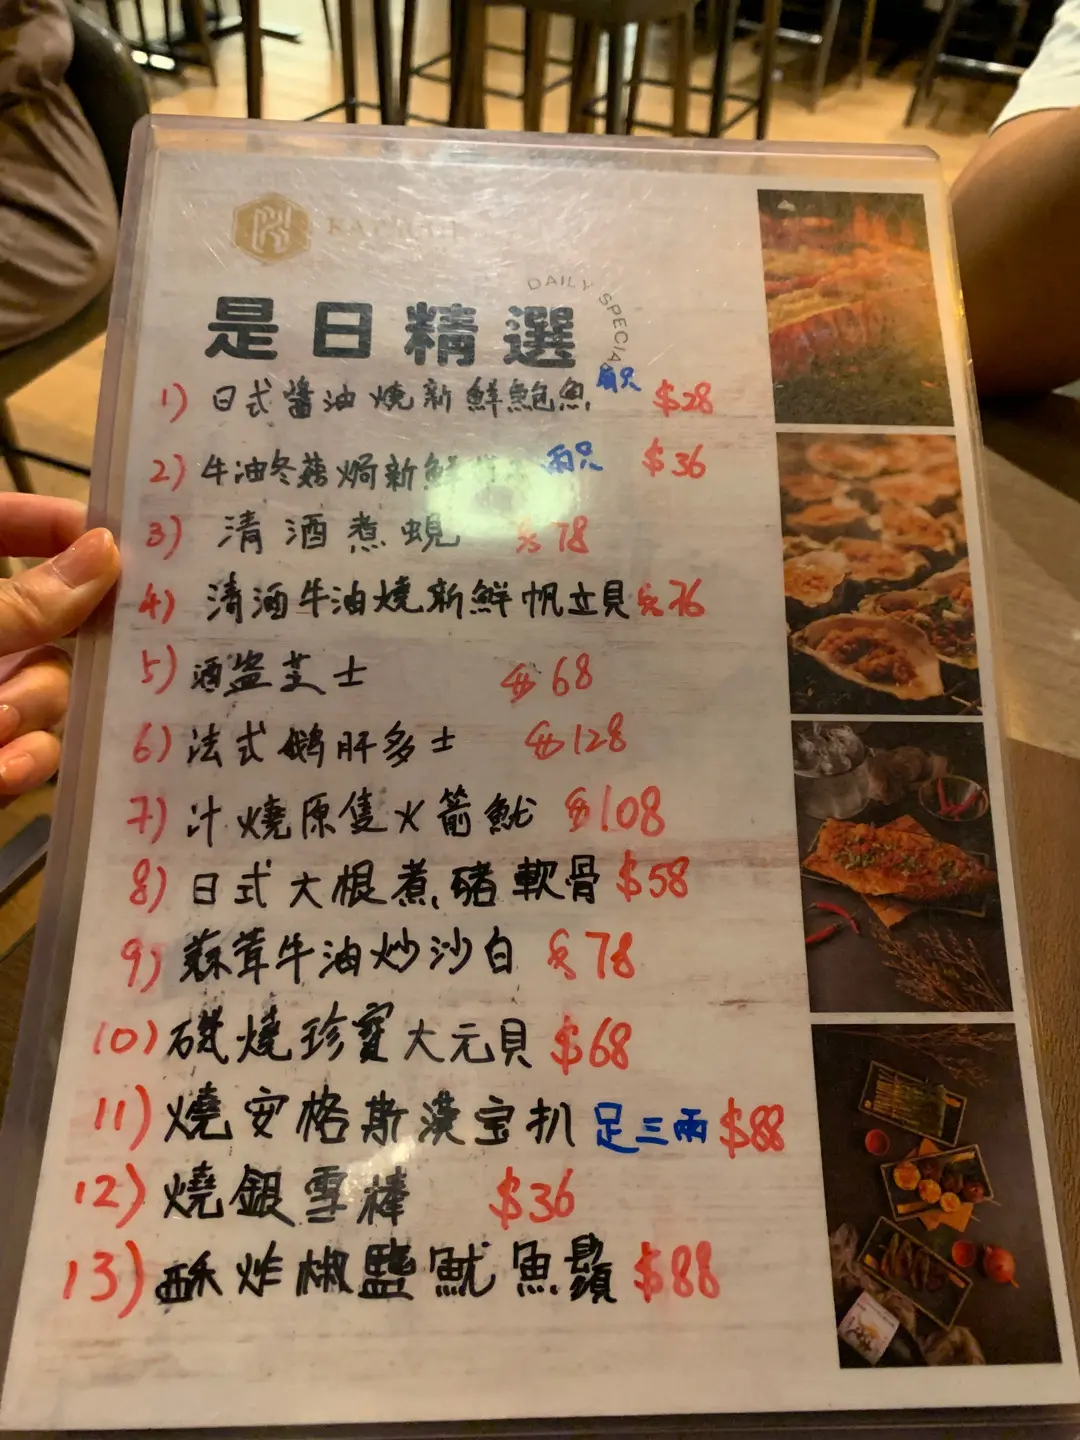 DAILY SPECIAL
是日精選
1) 日式醬油燒新鮮鮑魚 $28
2) 牛油冬菇焗新鮮 兩只 $36
3) 清酒煮蜆 $78
4) 清酒牛油燒新鮮帆立貝 $76
5) 酒盗芝士 $68
6) 法式鵝肝多士 $128
7) 汁燒原隻火箭魷 $108
8) 日式大根煮豬軟骨 $58
9) 蒜茸牛油炒沙白 $78
10) 磯燒珍寶大元貝 $68
11) 燒安格斯漢宝扒 足三兩 $88
12) 燒銀雪棒 $36
13) 酥炸椒鹽魷魚鬚 $88